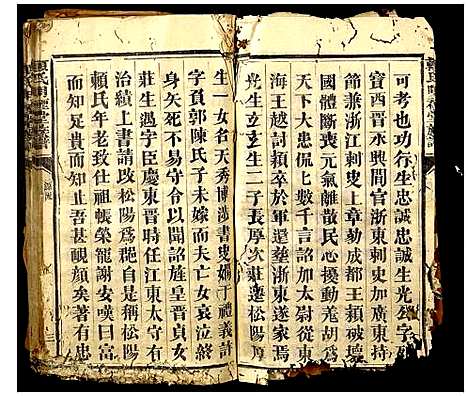 可考也功行生忠誠忠誠生光公字
寶西晉永興間官浙東刺史加廣東
節兼浙江刺史上章勒成都王穎破壞
國體斷喪元氣離散民心擾動羗胡爲
下大患侃上數千言詔加太尉從東
海王越討穎卒於軍遂塟浙東遂家焉
光生立立生二子長厚次莊遷松陽厚
生一女名天秀博涉書史嫺于禮義許
字負郭陳氏子未嫁而夫亡女哀泣絶
身矢死不易守令以聞詔旌皇晋貞女
莊生遇字臣慶東晋時任江東太守有
治績上書請改松陽爲郡自是稱松陽
賴氏年老致仕祖帳榮寵謝安嘆曰富
而知足貴而知止吾甚覥顔矣著有忠
賴氏明禋堂族譜